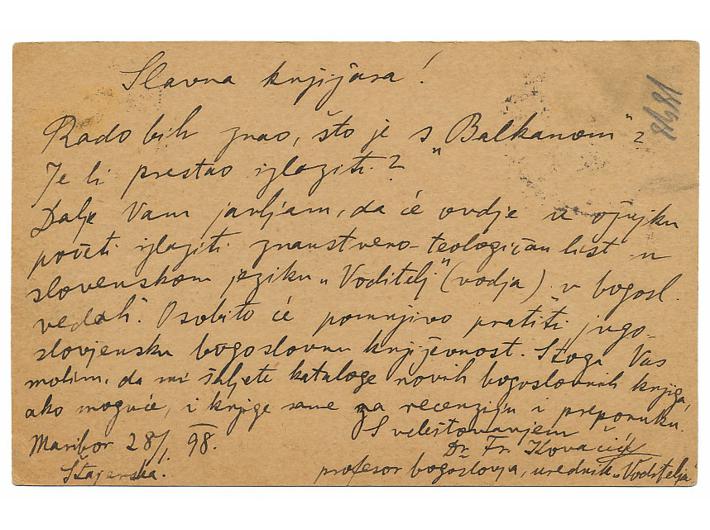 Slavna knjižara!
Rado bih znao, što je s „Balkanom"?
Je li prestao izlaziti?
Dalje Vam javljam, da će ovdje u ožujku
početi izlaziti znanstveno-teologičan list u
slovenskom jeziku „Voditelj" (vodja) v bogosl.
vedah. Osobito će pomnjivo pratiti jugo-
slovjensku bogoslovnu književnost. Stoga Vas
molim, da mi šaljete kataloge novih bogoslovnih knjiga,
ako moguće, i knjige same za recenziju i preporuku.
S veleštovanjem
Maribor 28/1 98.
Dr. Fr. Kovačič
Štajerska.
profesor bogoslovja, urednik „Voditelja"